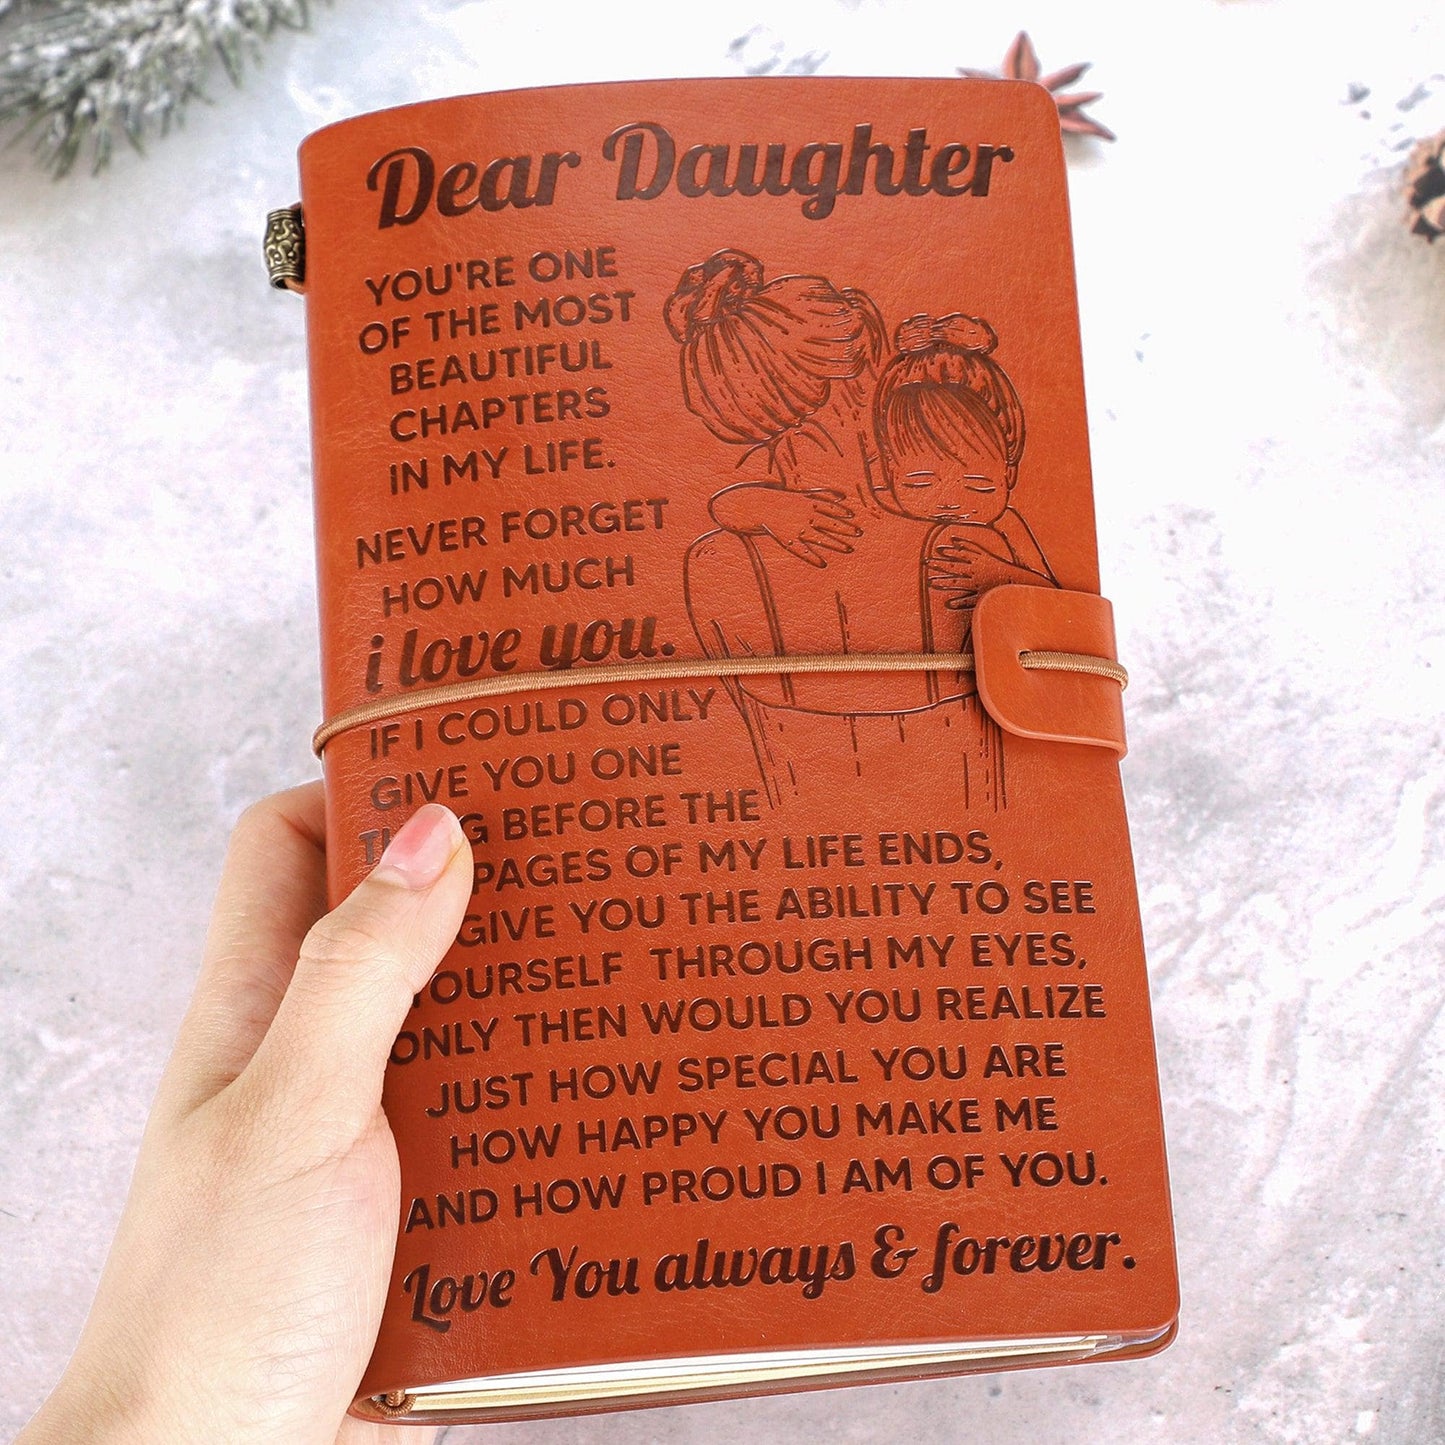 Dear Daughter
YOU'RE ONE
OF THE MOST
BEAUTIFUL
CHAPTERS
IN MY LIFE.
NEVER FORGET
HOW MUCH
i love you.
IF I COULD ONLY
GIVE YOU ONE
THING BEFORE THE
PAGES OF MY LIFE ENDS,
GIVE YOU THE ABILITY TO SEE
YOURSELF THROUGH MY EYES,
ONLY THEN WOULD YOU REALIZE
JUST HOW SPECIAL YOU ARE
HOW HAPPY YOU MAKE ME
AND HOW PROUD I AM OF YOU.
Love You always & forever.